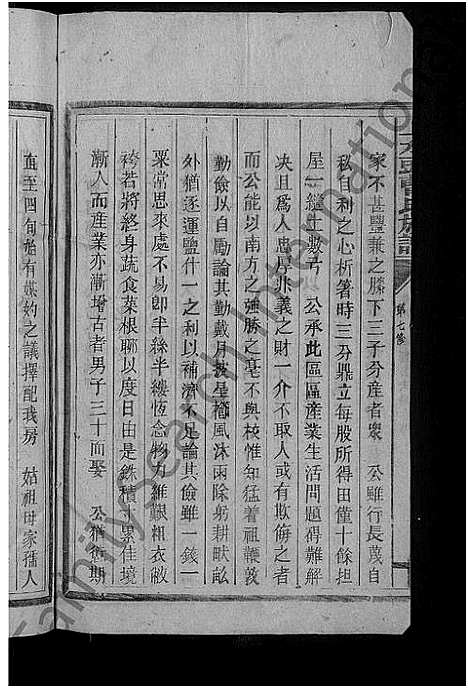 家不甚豐兼之膝下三子分產者衆　公雖行長茂自
私自利之心析箸時三分鼎立每股所得田僅十餘担
屋一縫土數亏　公承此區區產業生活問題碍難解
决且爲人忠厚非義之財一介不取人或有欺侮之者
而公能以南方之強勝之毫不與校惟知猛着祖鞭敦
勤儉以自勵論其勤戴月披星櫛風沐雨除躬耕畎畝
外猶逐運鹽什一之利以補濟不足論其儉雖一錢一
粟當思來處不易卽半絲半縷恆念物力維艱粗衣敝
袴若將終身蔬食菜根聊以度日由是銖積寸累佳境
漸入而產業亦漸增古者男子三十而娶　公猶衍期
直至四旬始有媒妁之議擇配我房　姑祖母家孺人
氏族譜
第七修
FamilySearch International